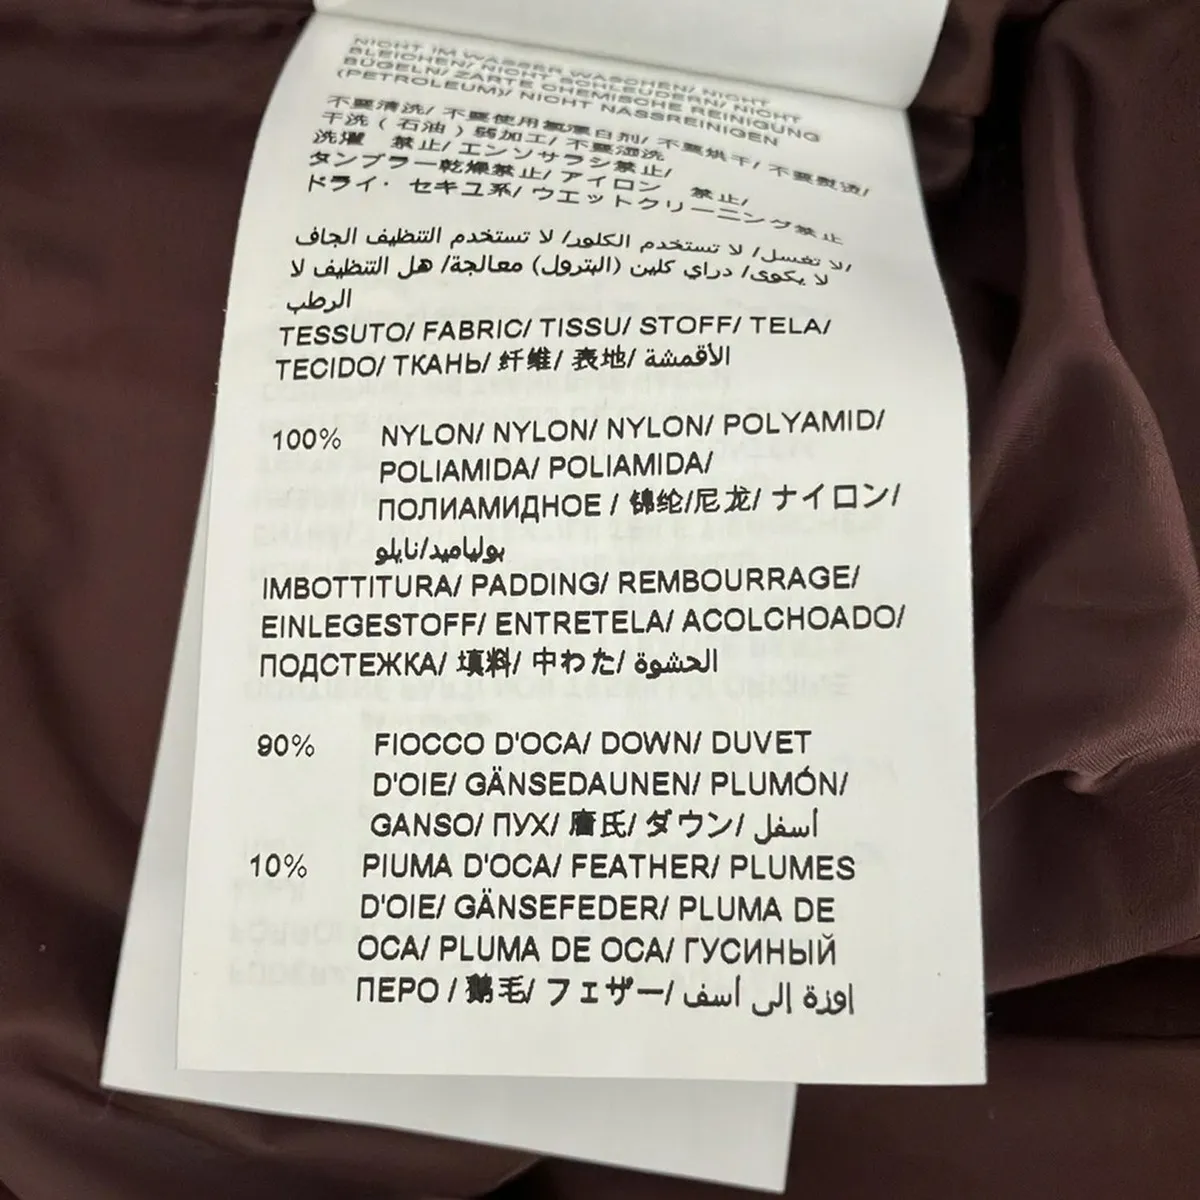 NICHT IM WASSER WASCHEN/ NICHT
BLEICHEN/ NICHT SCHLEUDERN/ NICHT
BÜGELN/ ZARTE CHEMISCHE REINIGUNG
(PETROLEUM)/ NICHT NASSREINIGEN
不要清洗/ 不要使用氯漂白剂/ 不要烘干/ 不要熨烫/
干洗 ( 石油 ) 弱加工/ 不要湿洗
洗濯 禁止/ エンソサラシ禁止/
タンブラー乾燥禁止/ アイロン 禁止/
ドライ・ セキユ系/ ウエットクリーニング禁止
لا تغسل/ لا تستخدم الكلور/ لا تستخدم التنظيف الجاف/
لا يكوى/ دراي كلين (البترول) معالجة/ هل التنظيف لا
الرطب
TESSUTO/ FABRIC/ TISSU/ STOFF/ TELA/
TECIDO/ ТКАНЬ/ 纤维/ 表地/ الأقمشة
100% NYLON/ NYLON/ NYLON/ POLYAMID/
POLIAMIDA/ POLIAMIDA/
ПОЛИАМИДНОЕ / 锦纶/尼龙/ ナイロン/
بولياميد/نايلو
IMBOTTITURA/ PADDING/ REMBOURRAGE/
EINLEGESTOFF/ ENTRETELA/ ACOLCHOADO/
ПОДСТЕЖКА/ 填料/ 中わた/ الحشوة
90% FIOCCO D'OCA/ DOWN/ DUVET
D'OIE/ GÄNSEDAUNEN/ PLUMÓN/
GANSO/ ПУХ/ 唐氏/ ダウン/ أسفل
10% PIUMA D'OCA/ FEATHER/ PLUMES
D'OIE/ GÄNSEFEDER/ PLUMA DE
OCA/ PLUMA DE OCA/ ГУСИНЫЙ
ПЕРО / 鵝毛/ フェザー/ اوزة إلى أسف